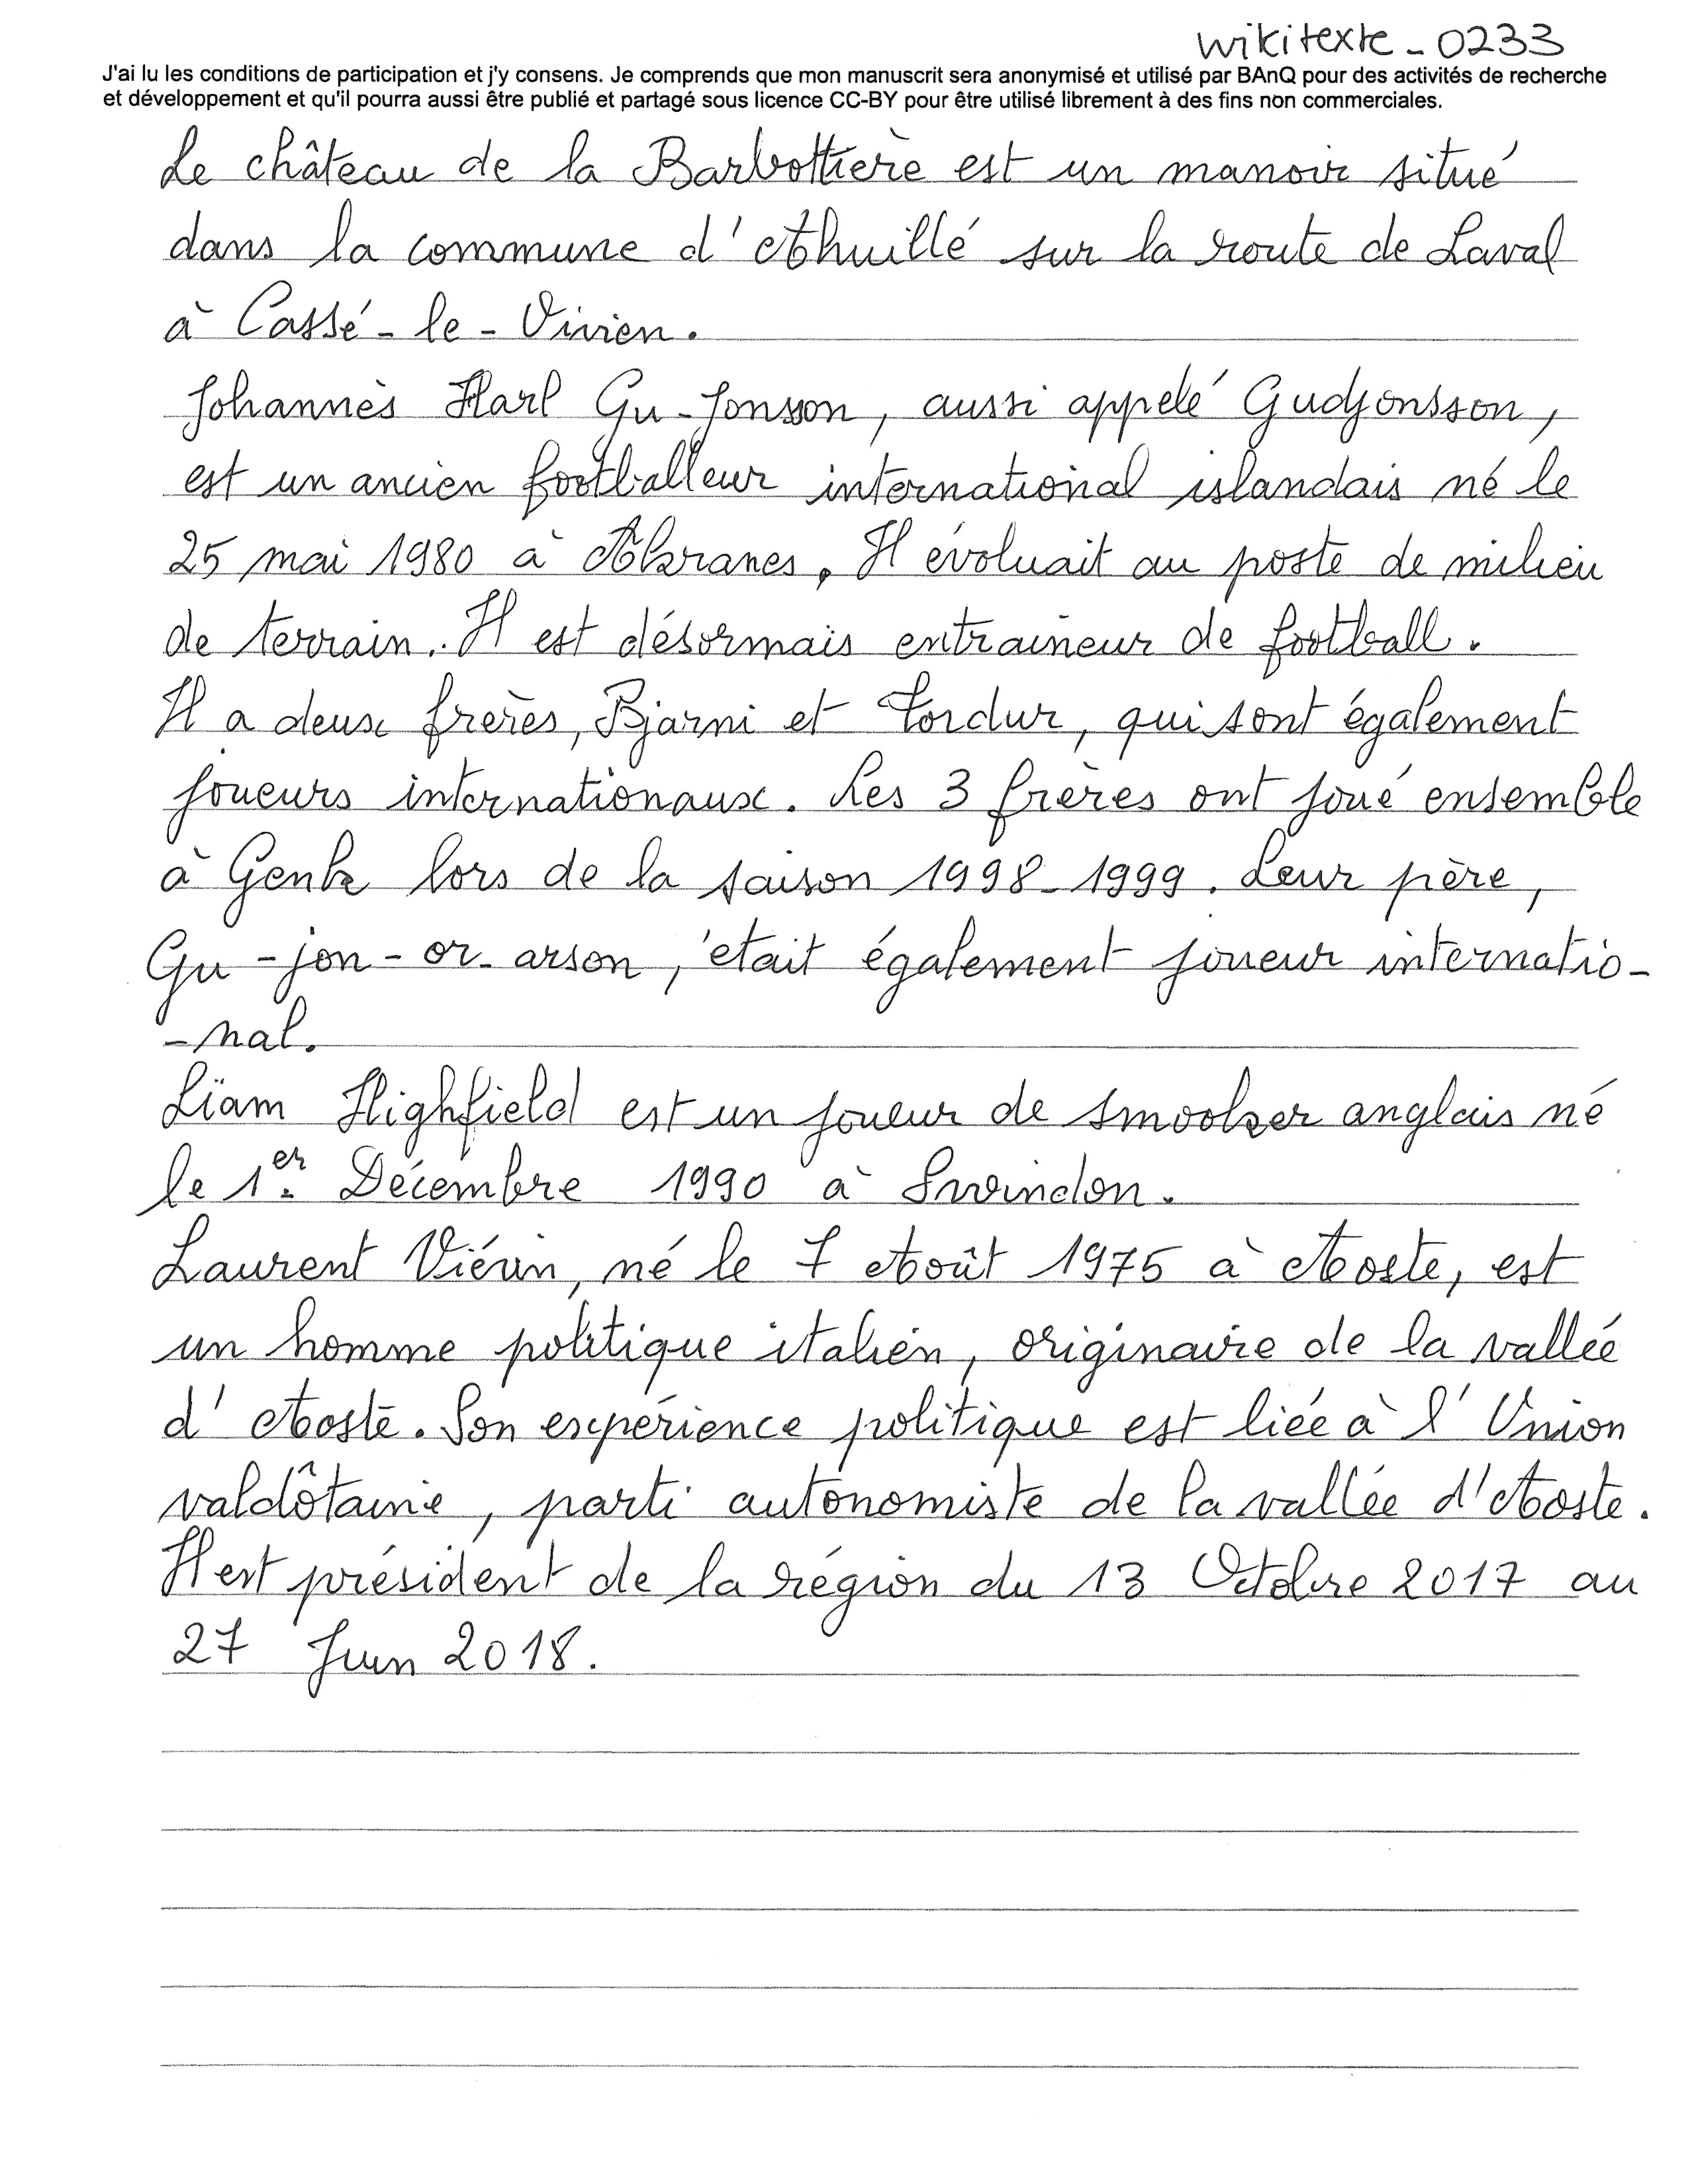 wikitexte_0233
J'ai lu les conditions de participation et j'y consens. Je comprends que mon manuscrit sera anonymisé et utilisé par BAnQ pour des activités de recherche
et développement et qu'il pourra aussi être publié et partagé sous licence CC-BY pour être utilisé librement à des fins non commerciales.
Le château de la Barbottière est un manoir situé
dans la commune d'Ahuillé sur la route de Laval
à Cossé-le-Vivien.
Johannès Karl Gu-Jonsson, aussi appelé Gudjonsson,
est un ancien footballeur international islandais né le
25 mai 1980 à Akranes. Il évoluait au poste de milieu
de terrain. Il est désormais entraîneur de football.
Il a deux frères, Bjarni et Tordur, qui sont également
joueurs internationaux. Les 3 frères ont joué ensemble
à Genk lors de la saison 1998-1999. Leur père,
Gu-jon-or-arson, était également joueur internatio-
-nal.
Liam Highfield est un joueur de smooker anglais né
le 1er Décembre 1990 à Swindon.
Laurent Viérin, né le 7 Août 1975 à Aoste, est
un homme politique italien, originaire de la vallée
d'Aoste. Son expérience politique est liée à l'Union
valdôtaine, parti autonomiste de la vallée d'Aoste.
Il est président de la région du 13 Octobre 2017 au
27 Juin 2018.